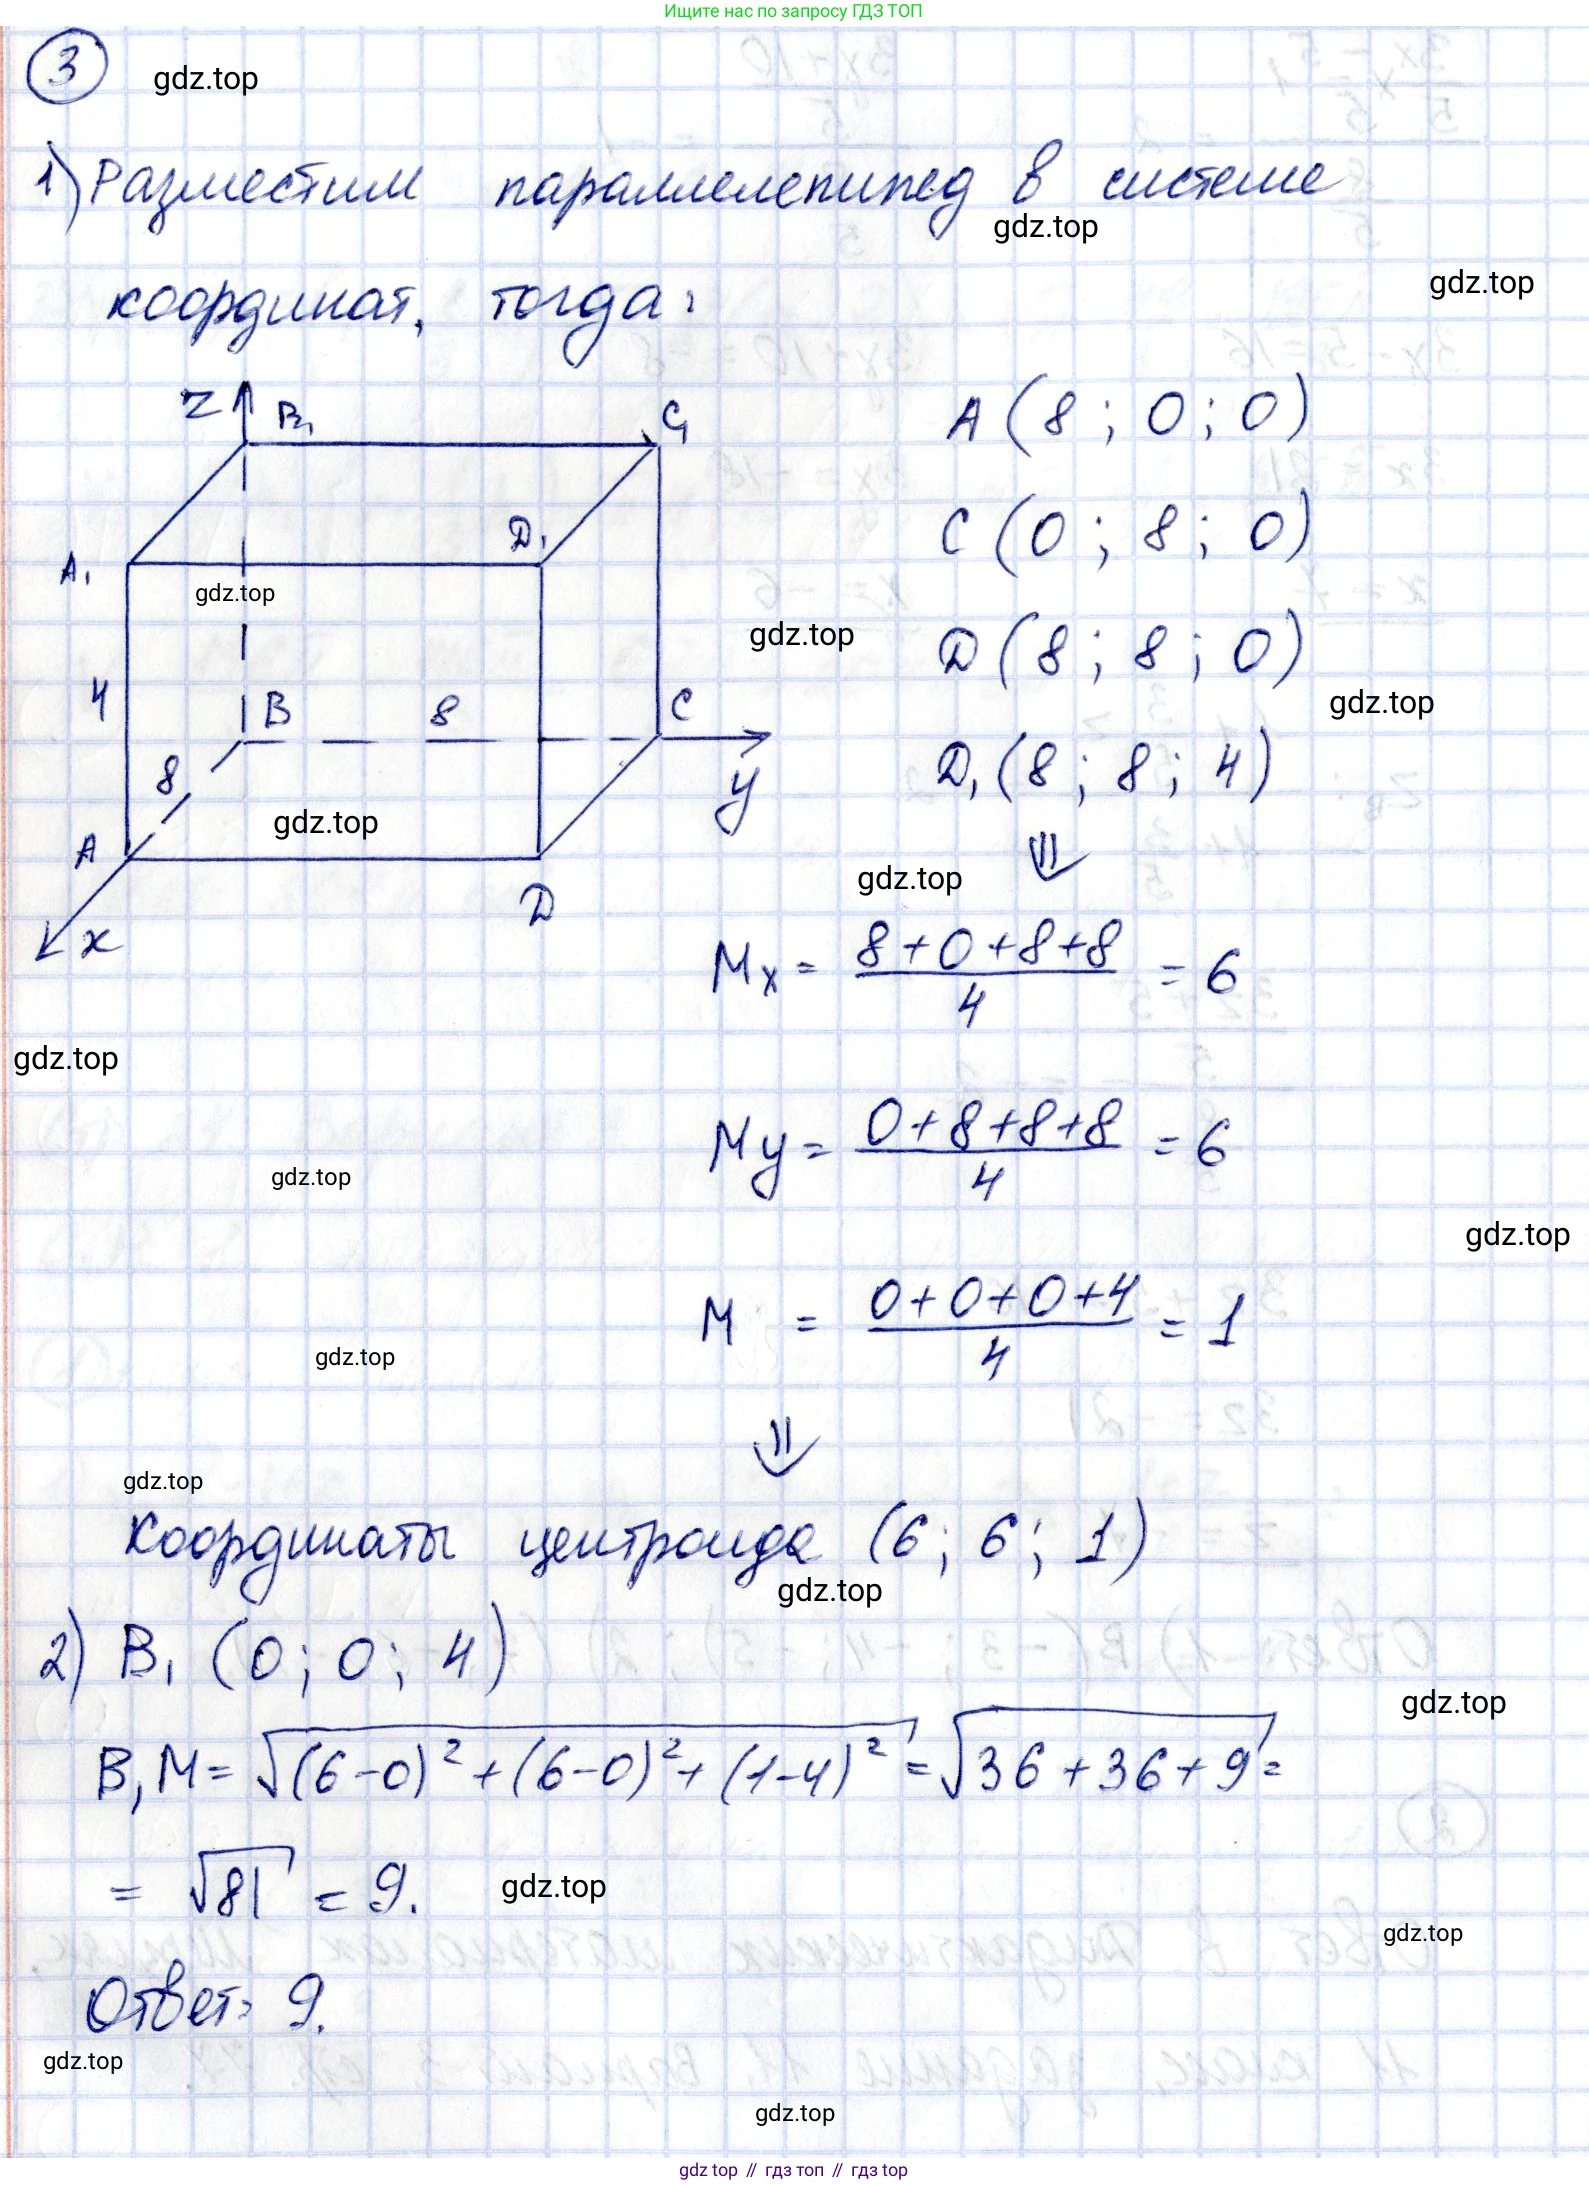 Ищите нас по запросу ГДЗ ТОП
3
gdz.top
1) Разместим параллелепипед в системе
gdz.top
координат, тогда:
gdz.top
z B₁ C₁
A (8 ; 0 ; 0)
C (0 ; 8 ; 0)
D₁
A₁
gdz.top
gdz.top
D (8 ; 8 ; 0)
4 B 8 C
gdz.top
8
y
D₁ (8 ; 8 ; 4)
gdz.top
A
⇓
gdz.top
D
x
Mx = (8+0+8+8)/4 = 6
gdz.top
My = (0+8+8+8)/4 = 6
gdz.top
gdz.top
M = (0+0+0+4)/4 = 1
gdz.top
⇓
gdz.top
Координаты центроида (6; 6; 1)
gdz.top
2) B₁ (0; 0; 4)
gdz.top
B₁M = √((6-0)² + (6-0)² + (1-4)²) = √(36+36+9) =
= √81 = 9.
gdz.top
gdz.top
Ответ: 9.
gdz.top
gdz.top
gdz top // гдз топ // гдз top